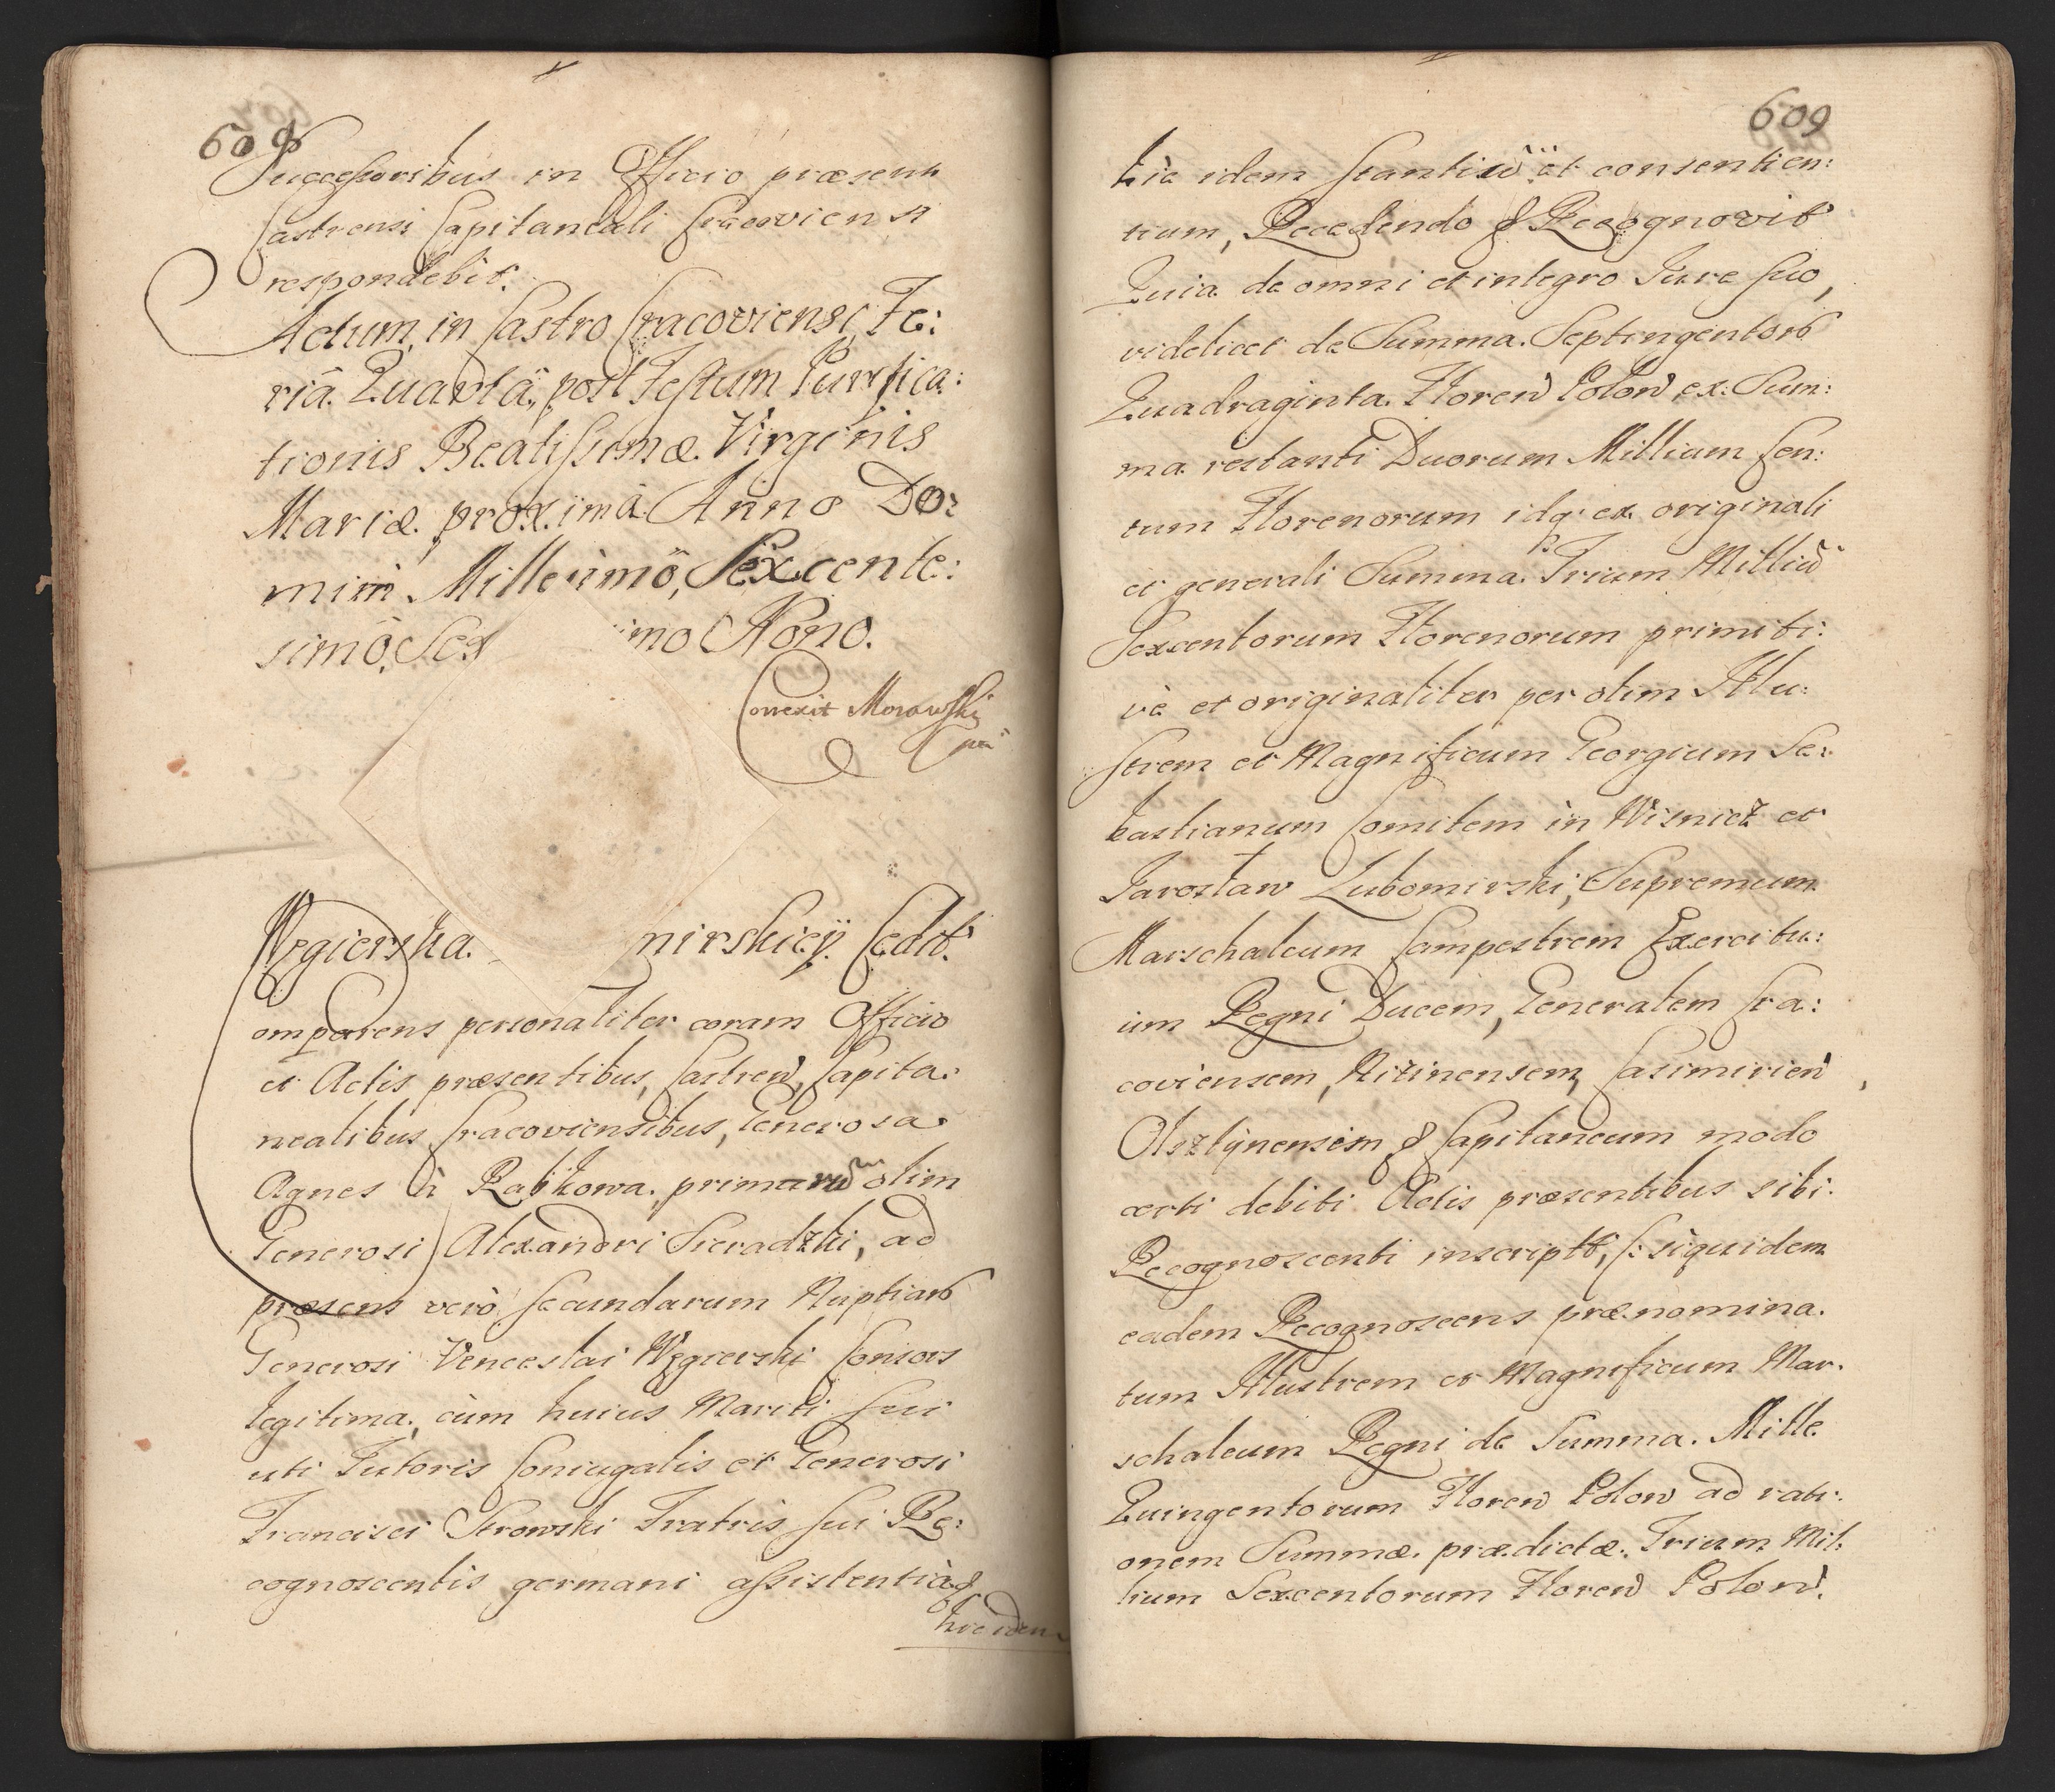 608
Successoribus in Officio præsenti
Castrensi Capitaneali Cracoviensi
respondebit.
Actum in Castro Cracoviensi, Fe:
riâ Quartâ, post Festum Purifica:
tionis Beatissimæ Virginis
Mariæ proximâ Anno Do:
mini Millesimô, Sexcente:
simô, Sex imo Nono.
Correxit Morawski
Węgierska. mirskiey Cedit.
Comparens personaliter coram Officio
et Actis præsentibus, Castren̄, Capita:
nealibus Cracoviensibus, Generosa
Agnes à Rabkowa, primarū olim
Generosi Alexandri Sieradzki, ad
præsens verò secundarum Nuptiarū
Generosi Venceslai Węgierski Consors
legitima, cùm huius Mariti sui
uti Tutoris Coniugalis et Generosi
Francisci Strowski Fratris sui Re:
cognoscentis germani assistentiâ &
hic idem
609
hic idem stantiū et consentien:
tium, Recedendo & Recognovit
Quia de omni et integro Iure suo,
videlicet de Summa Septingentorū
Quadraginta Floren̄ Polon̄ ex Sum:
ma restanti Duorum Millium Cen:
tum Florenorum idq; ex originali
et generali Summa Trium Milliū
Sexcentorum Florenorum primiti:
vè et originaliter per olim Illu:
strem et Magnificum Georgium Se:
bastianum Comitem in Wisnicz et
Jarosław Lubomirski, Supremum
Marschalcum Campestrem Exercitu:
um Regni Ducem, Generalem Cra:
coviensem, Nizinensem, Casimirien̄,
Olsztÿnensem & Capitaneum modo
certi debiti Actis præsentibus sibi
Recognoscenti inscriptt, (: siquidem
eadem Recognoscens prænomina:
tum Illustrem et Magnificum Mar:
schalcum Regni de Summa Mille
Quingentorum Floren̄ Polon̄ ad rati:
onem Summæ prædictæ Trium Mil:
lium Sexcentorum Floren̄ Polon̄.